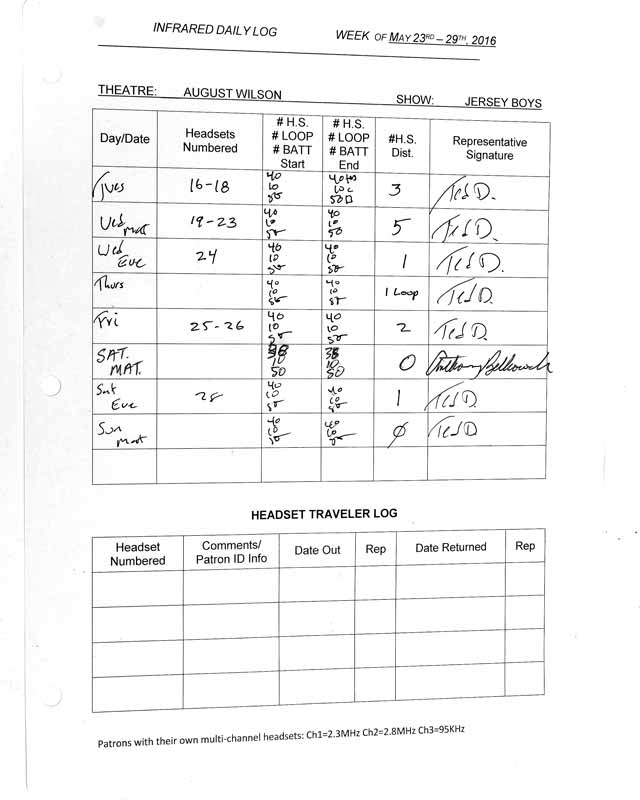 INFRARED DAILY LOG WEEK OF MAY 23RD – 29TH, 2016
THEATRE: AUGUST WILSON SHOW: JERSEY BOYS
Day/Date Headsets Numbered # H.S. # LOOP # BATT Start # H.S. # LOOP # BATT End #H.S. Dist. Representative Signature
Tues 16-18 40 10 50 40 10 50 3 Ted D.
Wed Mat 19-23 40 10 50 40 10 50 5 Ted D.
Wed Eve 24 40 10 50 40 10 50 1 Ted D.
Thurs 40 10 50 40 10 50 1 Loop Ted D.
Fri 25-26 40 10 50 40 10 50 2 Ted D.
SAT. MAT. 38 10 50 38 10 50 0 Anthony
Sat Eve 28 40 10 50 40 10 50 1 Ted D
Sun Mat 40 10 50 40 10 50 0 Ted D
HEADSET TRAVELER LOG
Headset Numbered Comments/ Patron ID Info Date Out Rep Date Returned Rep
Patrons with their own multi-channel headsets: Ch1=2.3MHz Ch2=2.8MHz Ch3=95KHz